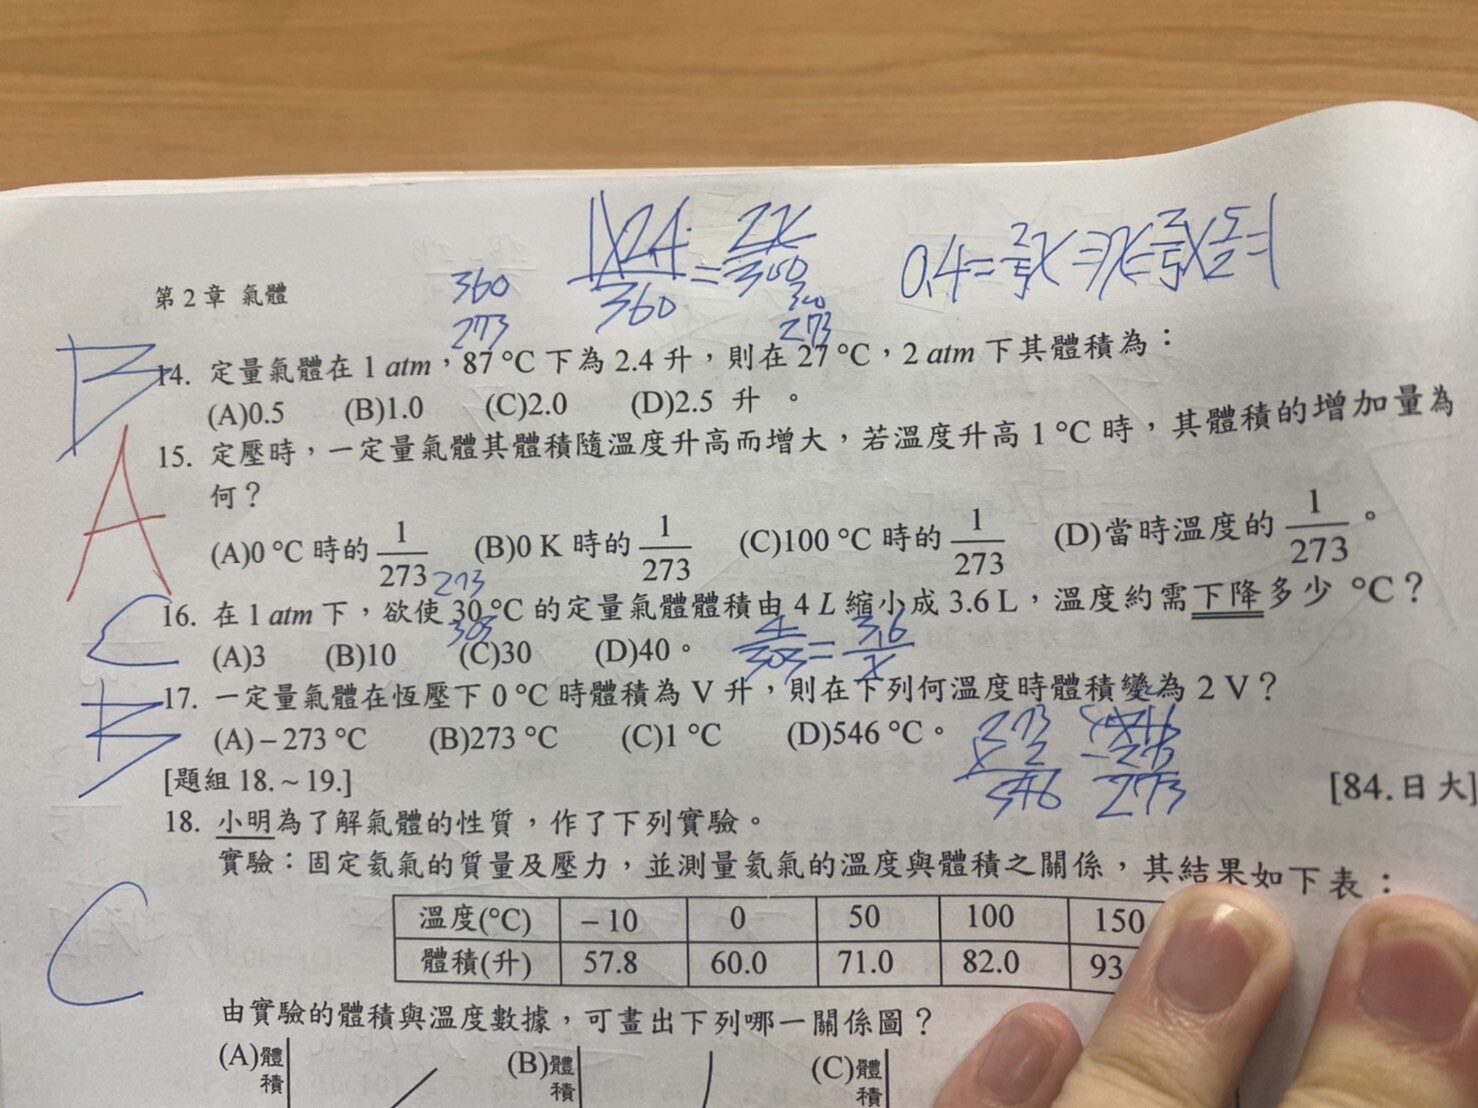 1×2.4/360 = 2x/300
0.4=2/5x ⇒x=2/5×5/2=1
360
273
300
273
第2章 氣體
B
14. 定量氣體在 1 atm，87 °C 下為 2.4 升，則在 27 °C，2 atm 下其體積為：
(A)0.5 (B)1.0 (C)2.0 (D)2.5 升 。
A
15. 定壓時，一定量氣體其體積隨溫度升高而增大，若溫度升高 1 °C 時，其體積的增加量為
何？
(A)0 °C 時的 1/273 (B)0 K 時的 1/273 (C)100 °C 時的 1/273 (D)當時溫度的 1/273 。
273
C
16. 在 1 atm 下，欲使 30 °C 的定量氣體體積由 4 L 縮小成 3.6 L，溫度約需下降多少 °C？
303
(A)3 (B)10 (C)30 (D)40。
4/303 = 3.6/x
B
17. 一定量氣體在恆壓下 0 °C 時體積為 V 升，則在下列何溫度時體積變為 2 V？
(A) – 273 °C (B)273 °C (C)1 °C (D)546 °C。
273
× 2
546
546
-273
273
[題組 18. ~ 19.]
[84.日大]
18. 小明為了解氣體的性質，作了下列實驗。
實驗：固定氦氣的質量及壓力，並測量氦氣的溫度與體積之關係，其結果如下表：
C
溫度(°C) – 10 0 50 100 150
體積(升) 57.8 60.0 71.0 82.0 93
由實驗的體積與溫度數據，可畫出下列哪一關係圖？
(A)體積 (B)體積 (C)體積